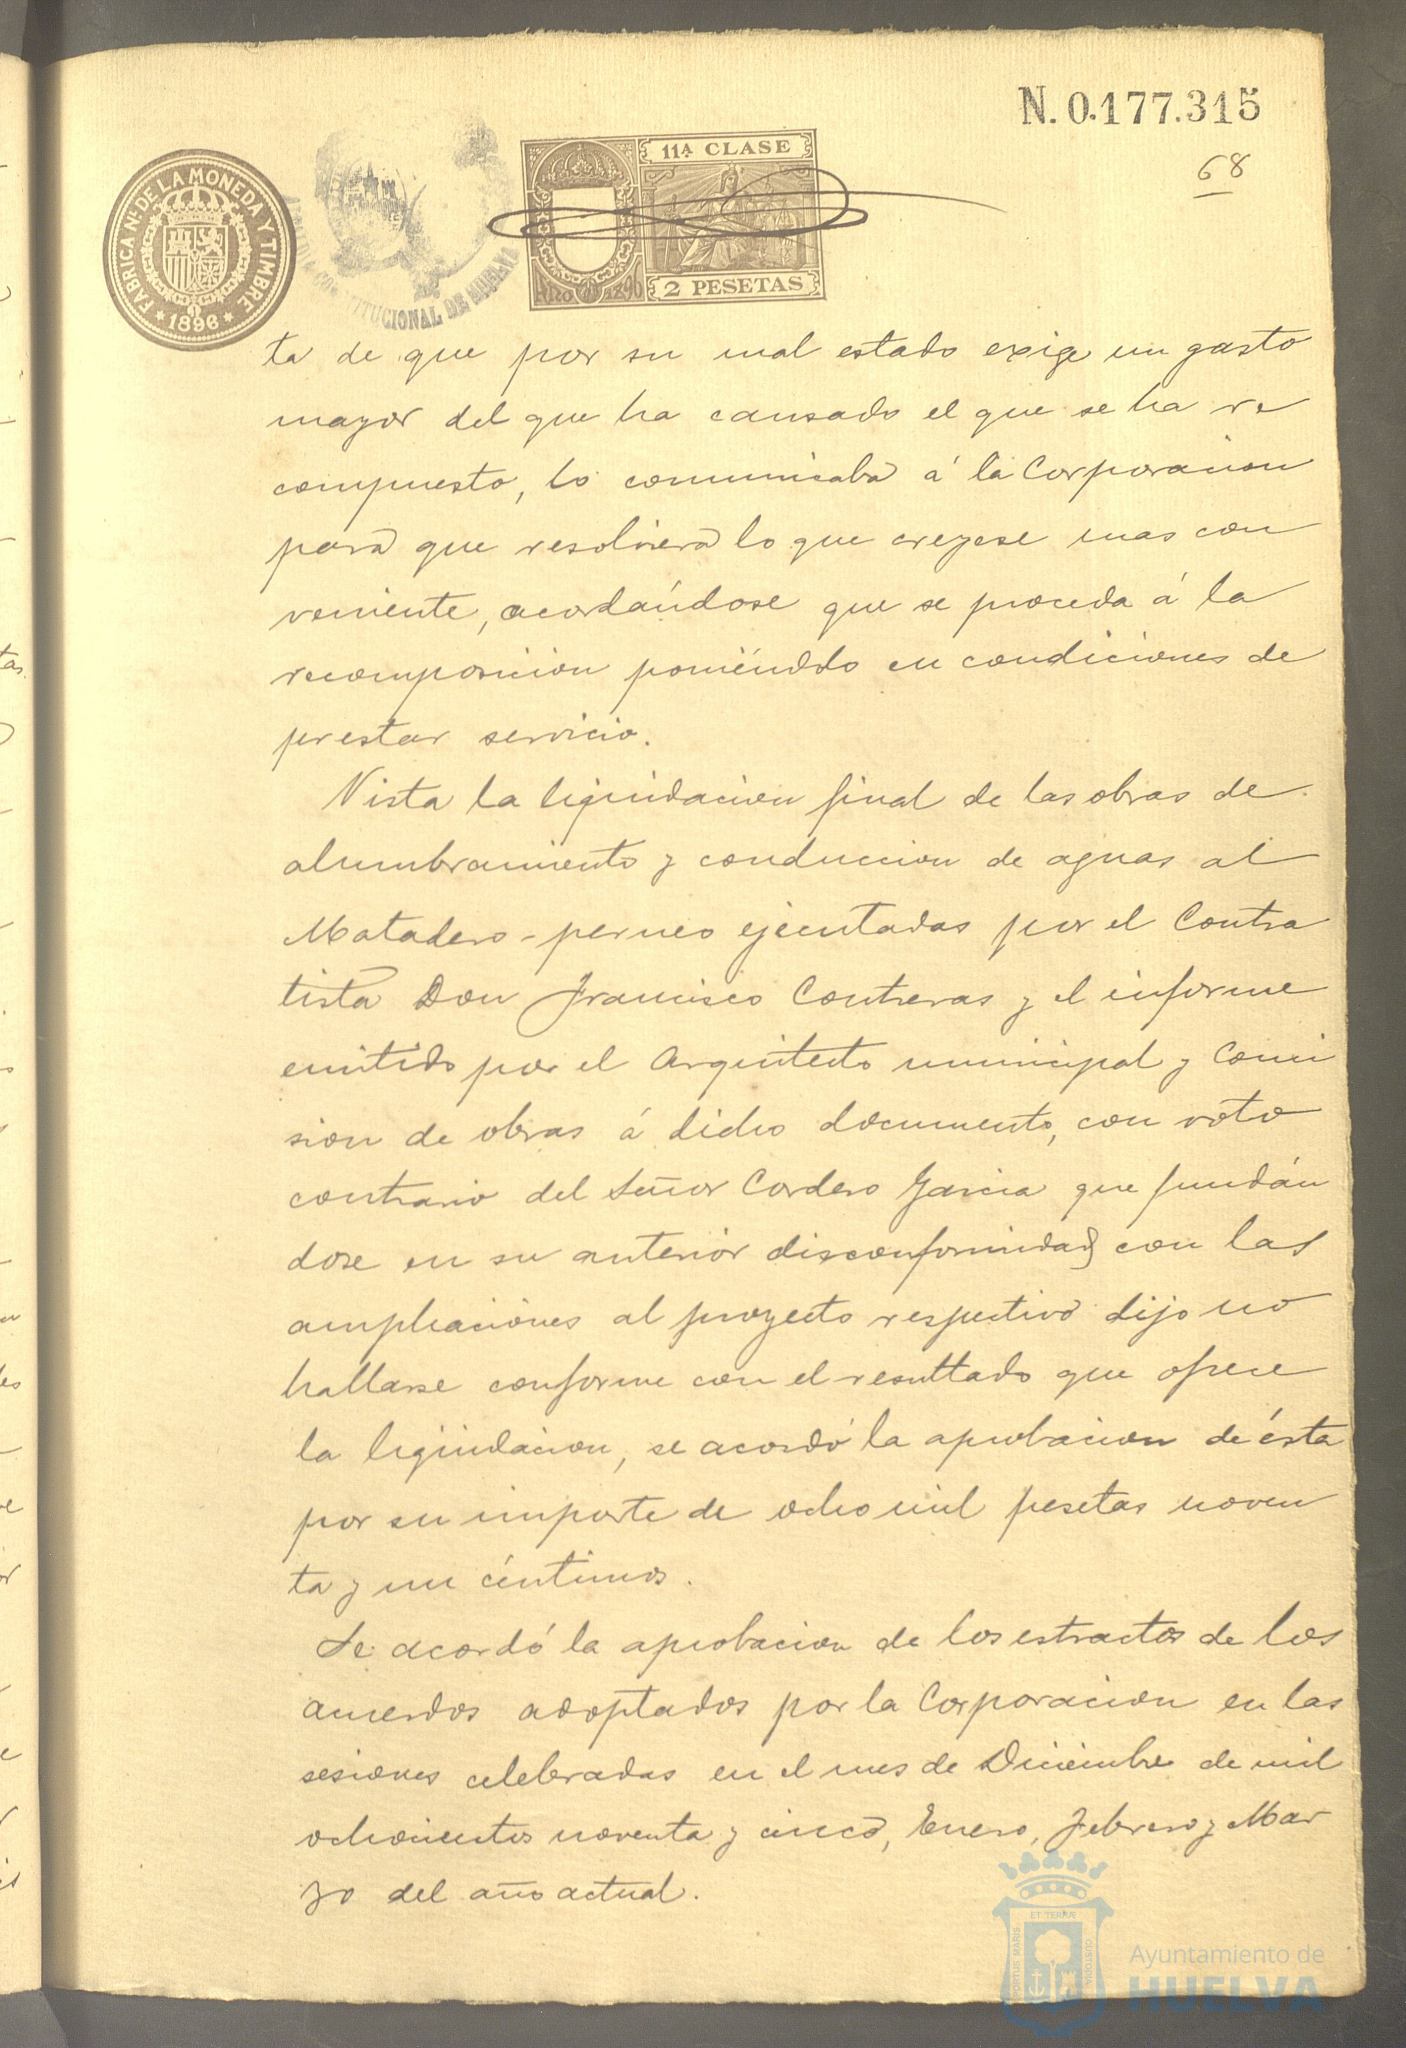 N. 0.177.315
68
FABRICA NL. DE LA MONEDA Y TIMBRE
* 1896 *
CONSTITUCIONAL DE HUELVA
11ª CLASE
Año 1896
2 PESETAS
ta de que por su mal estado exige un gasto
mayor del que ha causado el que se ha re
compuesto, lo comunicaba á la Corporacion
para que resolviera lo que creyese mas con
veniente, acordándose que se proceda á la
recomposicion poniéndolo en condiciones de
prestar servicio.
Vista la liquidacion final de las obras de
alumbramiento y conduccion de aguas al
Matadero-perneo ejecutadas por el Contra
tista Don Francisco Contreras y el informe
emitido por el Arquitecto municipal y Comi
sion de obras á dicho documento, con voto
contrario del Señor Cordero Garcia que fundán
dose en su anterior disconformidad con las
ampliaciones al proyecto respectivo dijo no
hallarse conforme con el resultado que ofrece
la liquidacion, se acordó la aprobacion de ésta
por su importe de ocho mil pesetas noven
ta y un céntimos.
Se acordó la aprobacion de los estractos de los
acuerdos adoptados por la Corporacion en las
sesiones celebradas en el mes de Diciembre de mil
ochocientos noventa y cinco, Enero, Febrero y Mar
zo del año actual.
PORTUS MARIS
ET TERRÆ
CUSTODIA
Ayuntamiento de
HUELVA